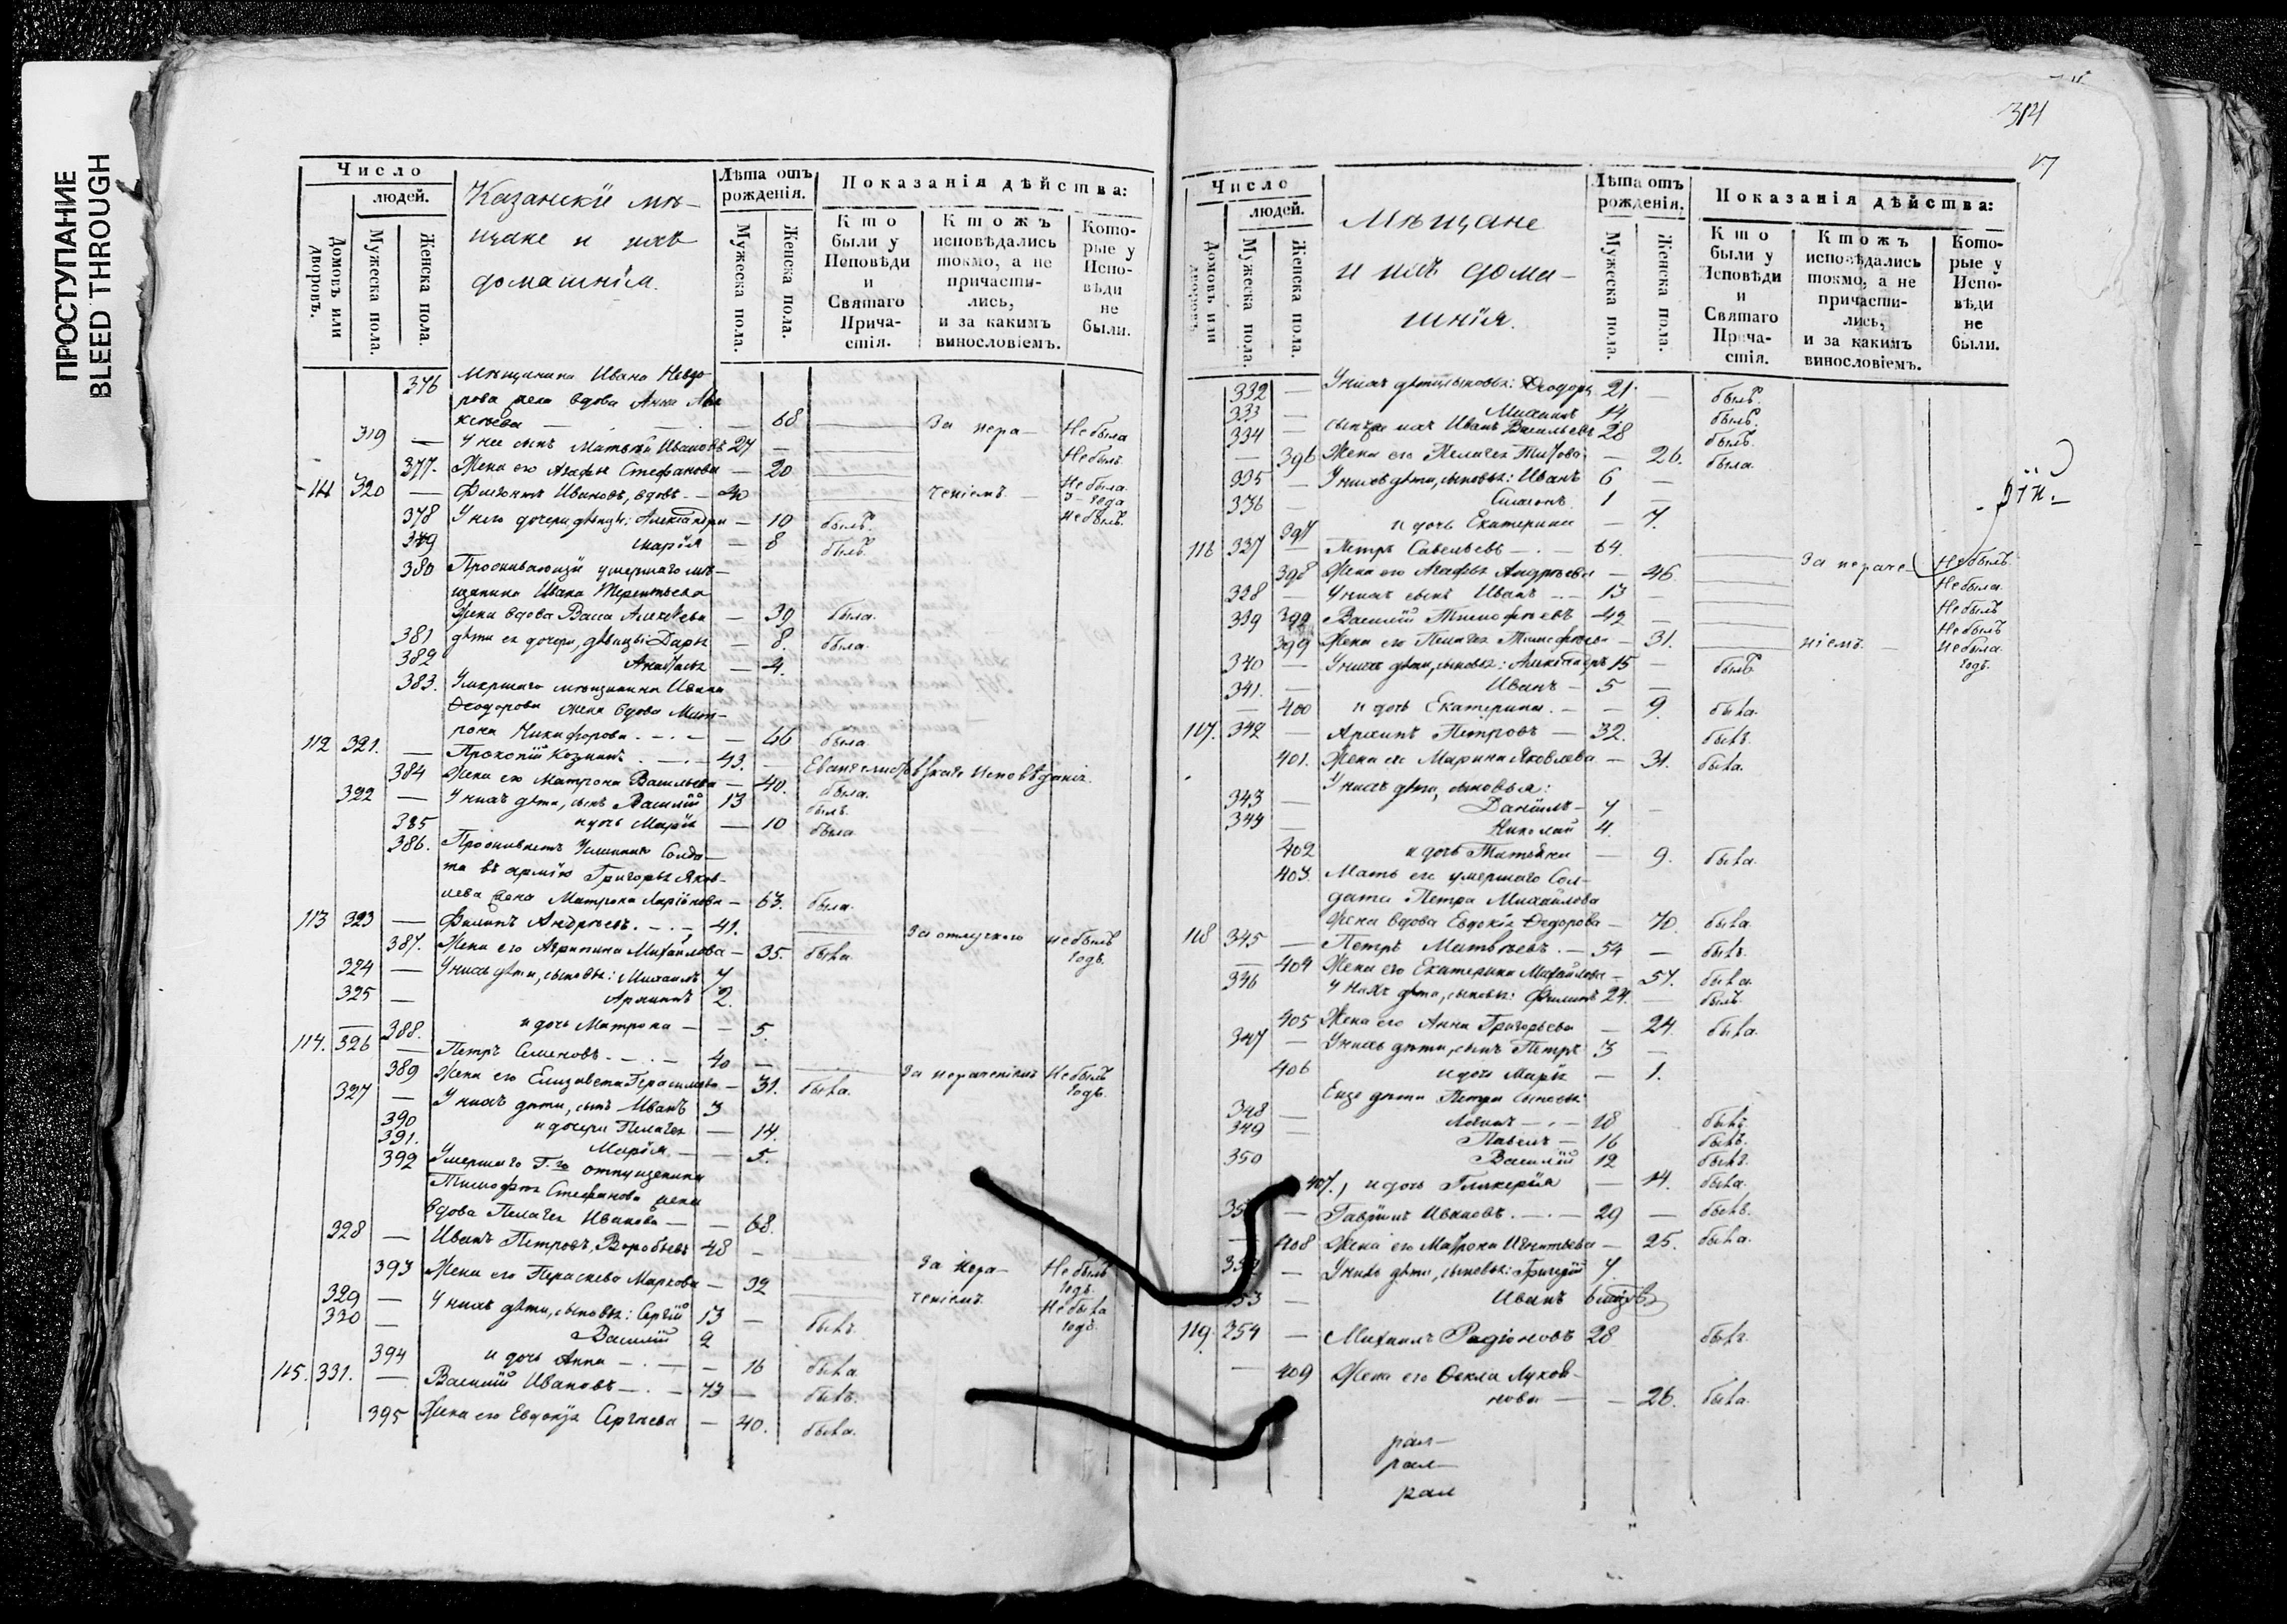 ПРОСТУПАНИЕ
BLEED THROUGH
Число
людей.
Домовъ или дворовъ.
Мужеска пола.
Женска пола.
Казанскiе мѣ-
щане и ихъ
домашнiя.
Лѣта отъ рожденiя.
Мужеска пола.
Женска пола.
Показанiя дѣйства:
Кто были у Исповѣди и Святаго Прича-стiя.
Ктожъ исповѣдались токмо, а не причасти-лись, и за какимъ винословiемъ.
Кото-рые у Испо-вѣди не были.
376 Мѣщанина Ивана
вдова Анна
68 За нера- Не была
319 — У нее сынъ Матвѣй Ивановъ 27 — Не былъ
377. Жена его Агафья Стефанова — 20 Не была
320 — Ивановъ, вдовъ — 40 ченiемъ 3 года Не былъ.
378 У него дочери девицы: Александра — 10 былъ.
379 Марiя — 8 былъ.
380 Проживающiй умершаго мѣ-
щанина Ивана Терентьева
Жена вдова Васса Алексѣева — 39 была.
381 дѣти ея дочери, девицы Дарья — 8. была.
382 — 4.
383. Умершаго мѣщанина Ивана
Ѳеодорова жена вдова Мат-
рона Никифорова — 46 была.
112 321. — Прокопiй Козминъ — 43. —
384 Жена его Матрона Васильева — 40. была.
322 — У нихъ дѣти, сынъ Василiй 13 былъ.
385 и дочь Марiя — 10 была
386. Проживаетъ Солда-
та въ армiю Григорья Яков-
лева жена Матрона Ларiонова — 63. была.
113 323 — Филипъ Андрѣевъ — 41. — За отлучкою не былъ годъ.
387. Жена его Агрипина Михайлова — 35. была.
324 — У нихъ дѣти, сыновья: Михаилъ 7
325 — Архипъ 2.
388. и дочь Матрона — — 5.
114. 326 — Петръ Семеновъ — 40 — За нераченiемъ Не былъ годъ.
389 Жена его Елизавета Герасимова — 31. была.
327 — У нихъ дѣти, сынъ Иванъ 3
390 и дочери Пелагея — 14.
391. Марiя — 5.
392 Умершаго отпущеника
Тимофея Стефанова жена
вдова Пелагея Иванова — — 68.
328 — Иванъ Петровъ, Воробьевъ 48 — За нера- Не былъ годъ
393 Жена его Параскева Маркова — 32 ченiемъ Не была годъ
329 — У нихъ дѣти, сыновья: Сергiй 13 — былъ.
330 — Василiй 9
394 и дочь Анна — — 16 была
115. 331. — Василiй Ивановъ — 43 — былъ.
395 Жена его Евдокiя Сергѣева — 40. была.
314
Число
людей.
Домовъ или дворовъ.
Мужеска пола.
Женска пола.
Мѣщане
и ихъ дома-
шнiя.
Лѣта отъ рожденiя.
Мужеска пола.
Женска пола.
Показанiя дѣйства:
Кто были у Исповѣди и Святаго Прича-стiя.
Ктожъ исповѣдались токмо, а не причасти-лись, и за какимъ винословiемъ.
Кото-рые у Испо-вѣди не были.
332 — У нихъ дѣти, сыновья: Ѳеодоръ 21 — былъ.
333 — Михаилъ 14 былъ.
334 — Иванъ Васильевъ 28 былъ.
— 396 Жена его Пелагея — 26. была.
335 — У нихъ дѣти, сыновья: Иванъ 6 —
336 — 1 —
397 и дочь Екатерина — 7.
116 337 — Петръ Савельевъ — 64 За нераче- Не былъ
398 Жена его Агафья Андрѣева — 46. Не была.
338 — У нихъ сынъ Иванъ — 13 — Не былъ
339 Василiй Тимофѣевъ — 42 — Не былъ
399 Жена его Пелагея — 31. нiемъ Не была. годъ.
340 — У нихъ дѣти, сыновья: Александръ 15 — былъ
341. — Иванъ — 5 —
— 400 и дочь Екатерина — 9. была.
117. 342 — Архипъ Петровъ — 32. былъ.
401. Жена его Марина Яковлева — 31. была.
У нихъ дѣти, сыновья:
343 — Данiилъ 7 —
344 — Николай 4.
402 и дочь Татьяна — 9. была.
403. Мать его умершаго Сол-
дата Петра Михайлова
Жена вдова Евдокiя Ѳедорова — 70. была.
118 345 — Петръ Матвѣевъ — 54 — былъ.
— 404 Жена его Екатерина Михайлова — 57. была.
346 У нихъ дѣти, сыновья: Филипъ 24. — былъ.
405 Жена его Анна Григорьева — 24 была.
347 — У нихъ дѣти, сынъ Петръ 3 —
406 и дочь Марья — 1.
Еще дѣти Петра сыновья
348 — 18 былъ.
349 — Павелъ — 16 былъ.
350 Василiй 12 былъ.
407. и дочь Гликерiя — 14. была.
— Гаврiилъ Ивановъ — 29 — былъ.
— 408 Жена его Матрона Игнатьева — 25. была.
— У нихъ дѣти, сыновья: Григорiй 7.
— Иванъ
119. 354 — Михаилъ Родiоновъ 28 былъ.
— 409 Жена его Ѳекла
нова — — 26. была.